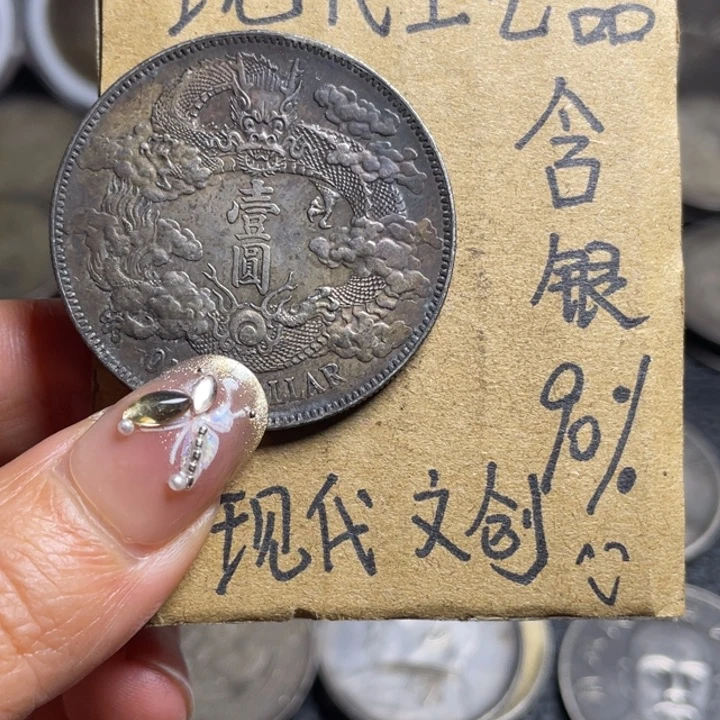 现代工艺品
含银90%
壹
圓
LLAR
现代 文创